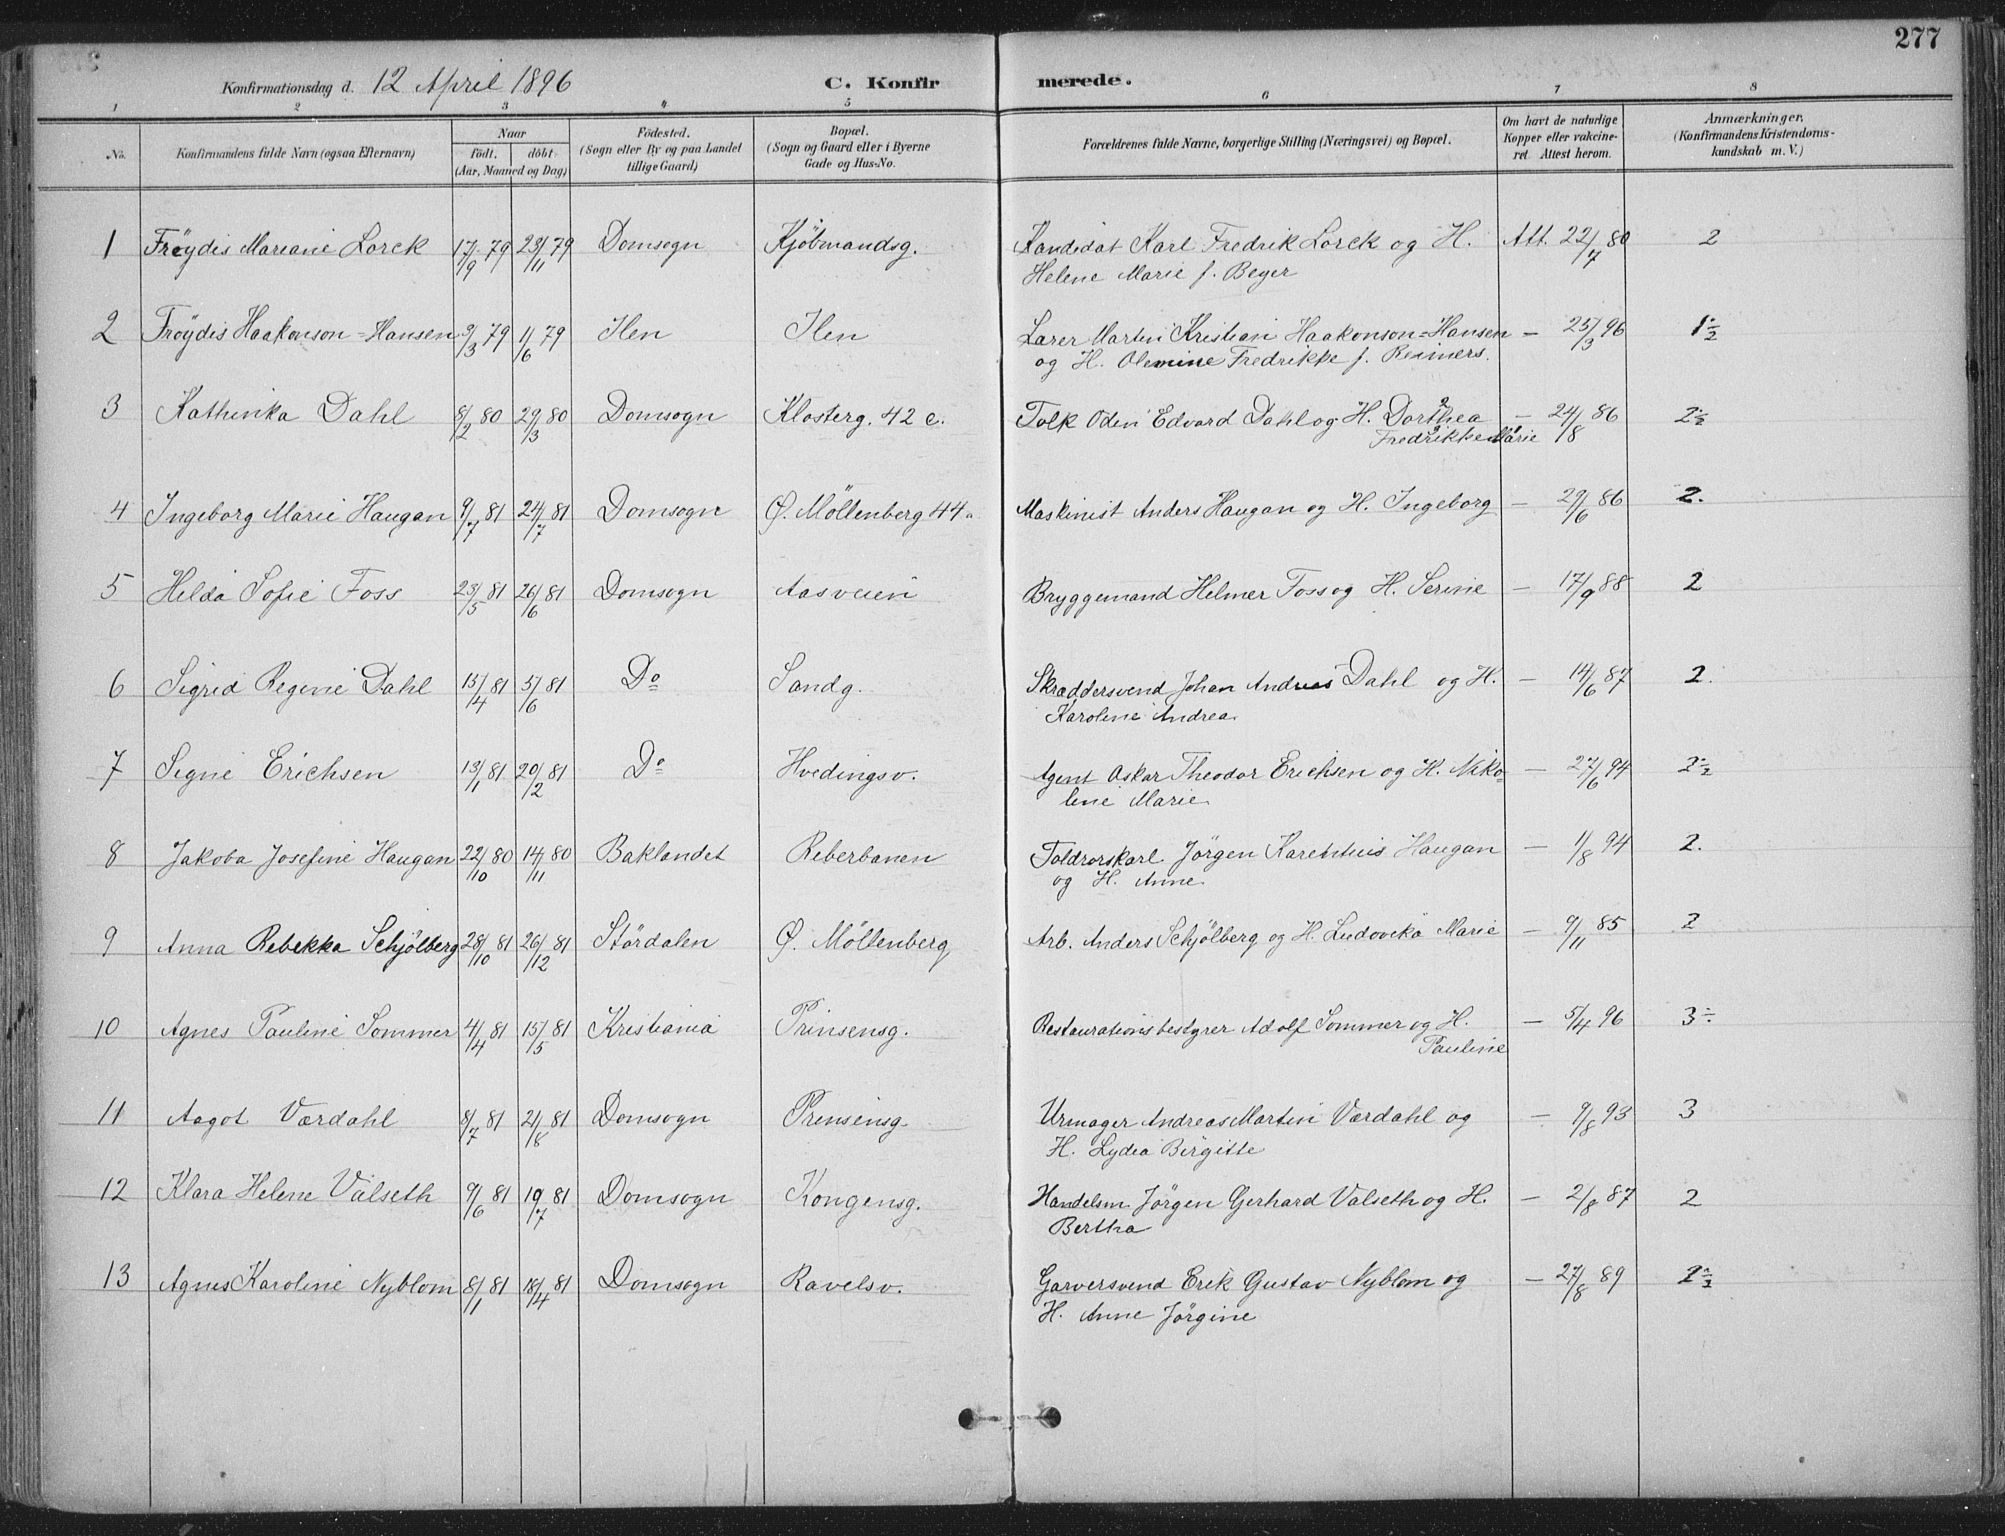 277
Konfirmationsdag d. 12 April 1896 C. Konfirmerede.
1 2 3 4 5 6 7 8
No. Konfirmandens fulde Navn (ogsaa Efternavn) Naar födt. döbt. (Aar, Maaned og Dag) Födested. (Sogn eller By og paa Landet tillige Gaard) Bopæl. (Sogn og Gaard eller i Byerne Gade og Hus-No. Forældrenes fulde Navne, borgerlige Stilling (Næringsvei) og Bopæl. Om havt de naturlige Kopper eller vakcineret Attest herom. Anmærkninger. (Konfirmandens Kristendomskundskab m. V.)
1 Fröydis Mariane Lorck 17/9 79 23/11 79 Domsogn Kjöbmandsg. Kandidat Karl Fredrik Lorck og H. Att. 22/7 80 2
Helene Marie f. Beyer
2 Fröydis Haakonson=Hansen 3/3 79 1/6 79 Ilen Ilen Lærer Martin Kristian Haakonson=Hansen — 25/3 96 1÷2
og H. Olemine Fredrikke f. Reimers.
3 Kathinka Dahl 8/2 80 29/3 80 Domsogn Klosterg. 42 c. Tolk Odin Edvard Dahl og H. Dorthea — 24/8 86 2÷
Fredrikke Marie
4 Ingeborg Marie Haugan 9/7 81 24/7 81 Domsogn Ø. Möllenberg 44a Maskinist Anders Haugan og H. Ingeborg — 29/6 86 2.
5 Hilda Sofie Foss 23/5 81 26/6 81 Domsogn Aasveien Bryggemand Helmer Foss og H. Serine — 17/9 88 2
6 Sigrid Regine Dahl 15/4 81 5/6 81 Do Sandg. Skræddersvend Johan Andreas Dahl og H. — 14/6 87 2.
Karoline Andrea.
7 Signe Erichsen 13/1 81 20/2 81 Do Hvedingsv. Agent Oskar Theodor Erichsen og H. Niko- — 27/6 94
line Marie.
8 Jakoba Josefine Haugan 22/10 80 14/11 80 Baklandet Reberbanen Toldrorskarl Jörgen Haugan — 1/8 94 2.
og H. Anne.
9 Anna Rebekka Schjölberg 28/10 81 26/12 81 Stördalen Ø. Möllenberg Arb. Anders Schjölberg og H. Ludovika Marie — 9/11 85 2
10 Agnes Pauline Sommer 4/4 81 15/5 81 Kristiania Prinsensg. Restaurationsbestyrer Adolf Sommer og H. — 5/4 96 3÷
Pauline
11 Aagot Værdahl 8/7 81 21/8 81 Domsogn Prinsensg. Urmager Andreas Martin Værdahl og — 9/8 93 3
H. Lydia Birgitte
12 Klara Helene Valseth 9/6 81 19/7 81 Domsogn Kongensg. Handelsm. Jörgen Gerhard Valseth og H. — 2/8 87 2
Bertha
13 Agnes Karoline Nyblom 8/1 81 18/4 81 Domsogn Ravelsv. Garversvend Erik Gustav Nyblom og — 27/8 89
H. Anne Jörgine